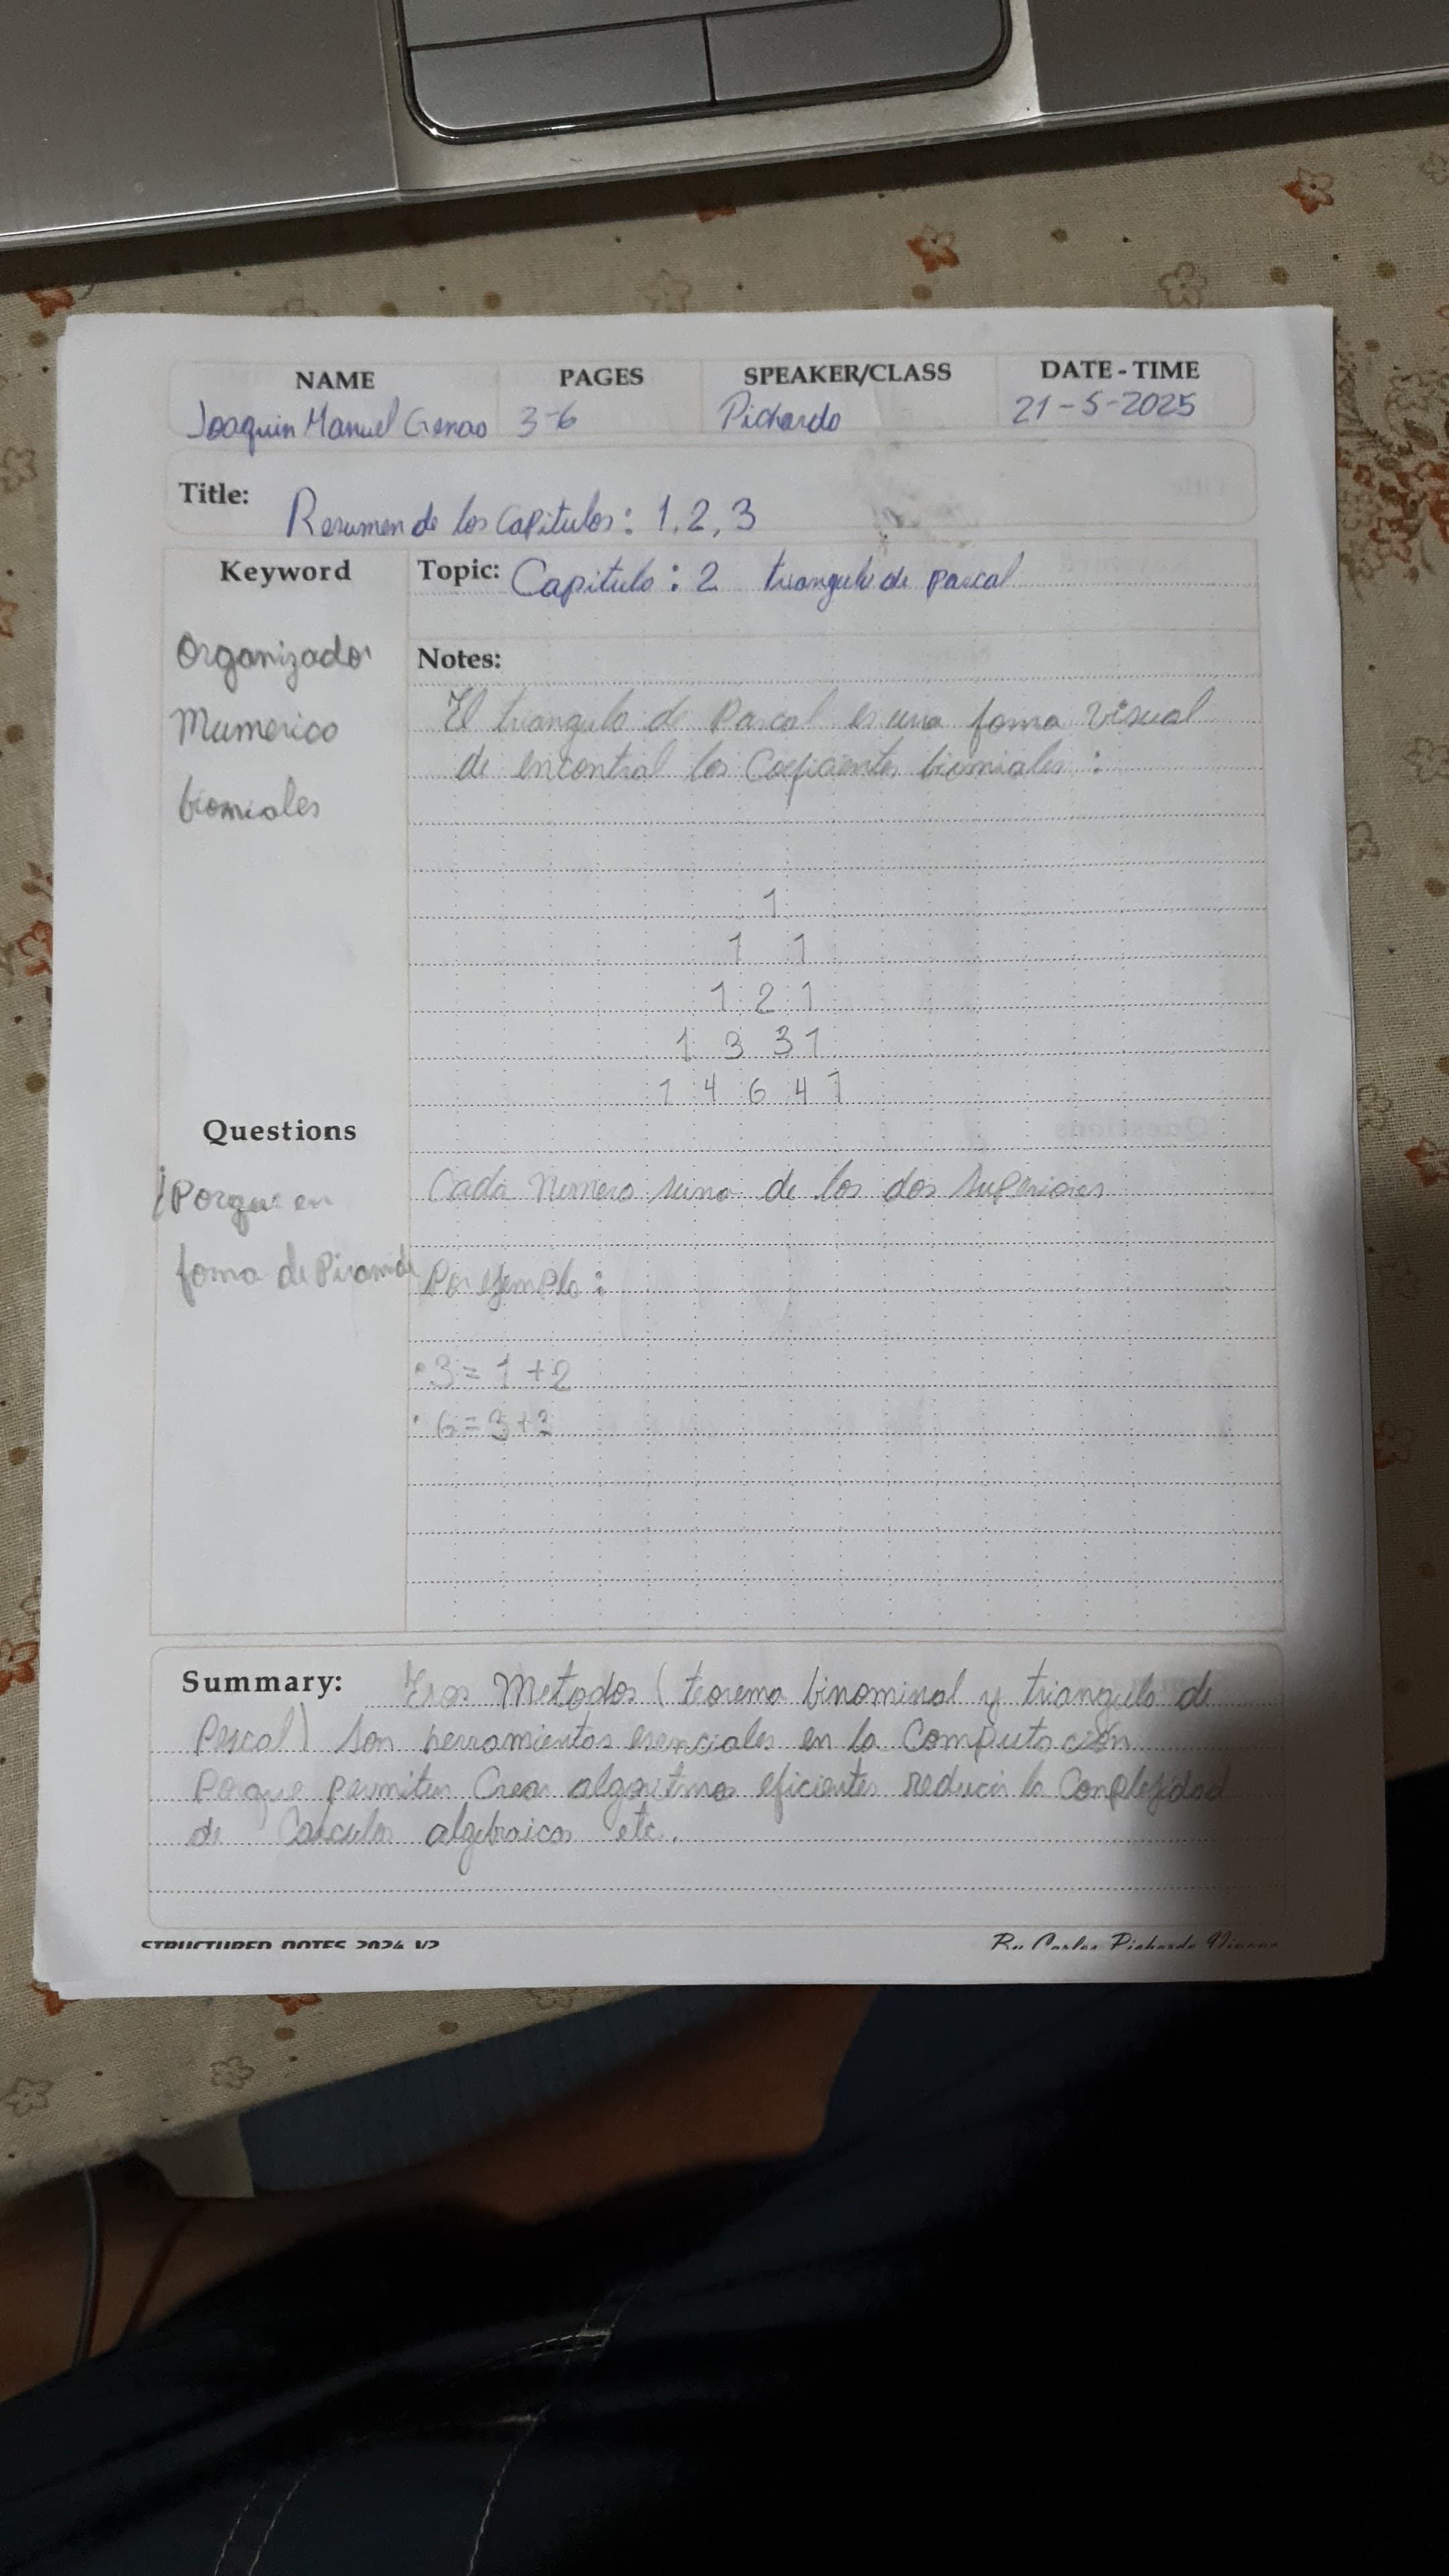 NAME PAGES SPEAKER/CLASS DATE - TIME
Joaquin Manuel Genao 3-6 Pichardo 21-5-2025
Title: Resumen de los Capitulos: 1, 2, 3
Keyword
Topic: Capitulo: 2 triangulo de pascal
Organizador
Numerico
biomiales
Notes:
El triangulo de Pascal es una foma visual
de encontral los Coeficientes biomiales :
1
1 1
1 2 1
1 3 3 1
1 4 6 4 1
Questions
¿Porque en
foma de Piramide
Cada Numero suma de los dos superiores
Por ejemplo :
• 3 = 1 + 2
• 6 = 3 + 3
Summary: Esos Metodos ( teorema binominal y triangulo de
Pascal ) son herramientas esenciales en la Computación
Porque permiten Crear algoritmos eficientes reducir la Complejidad
de Calculos algebraicos etc.
STRUCTURED NOTES 2024 V2
By Carlos Pichardo